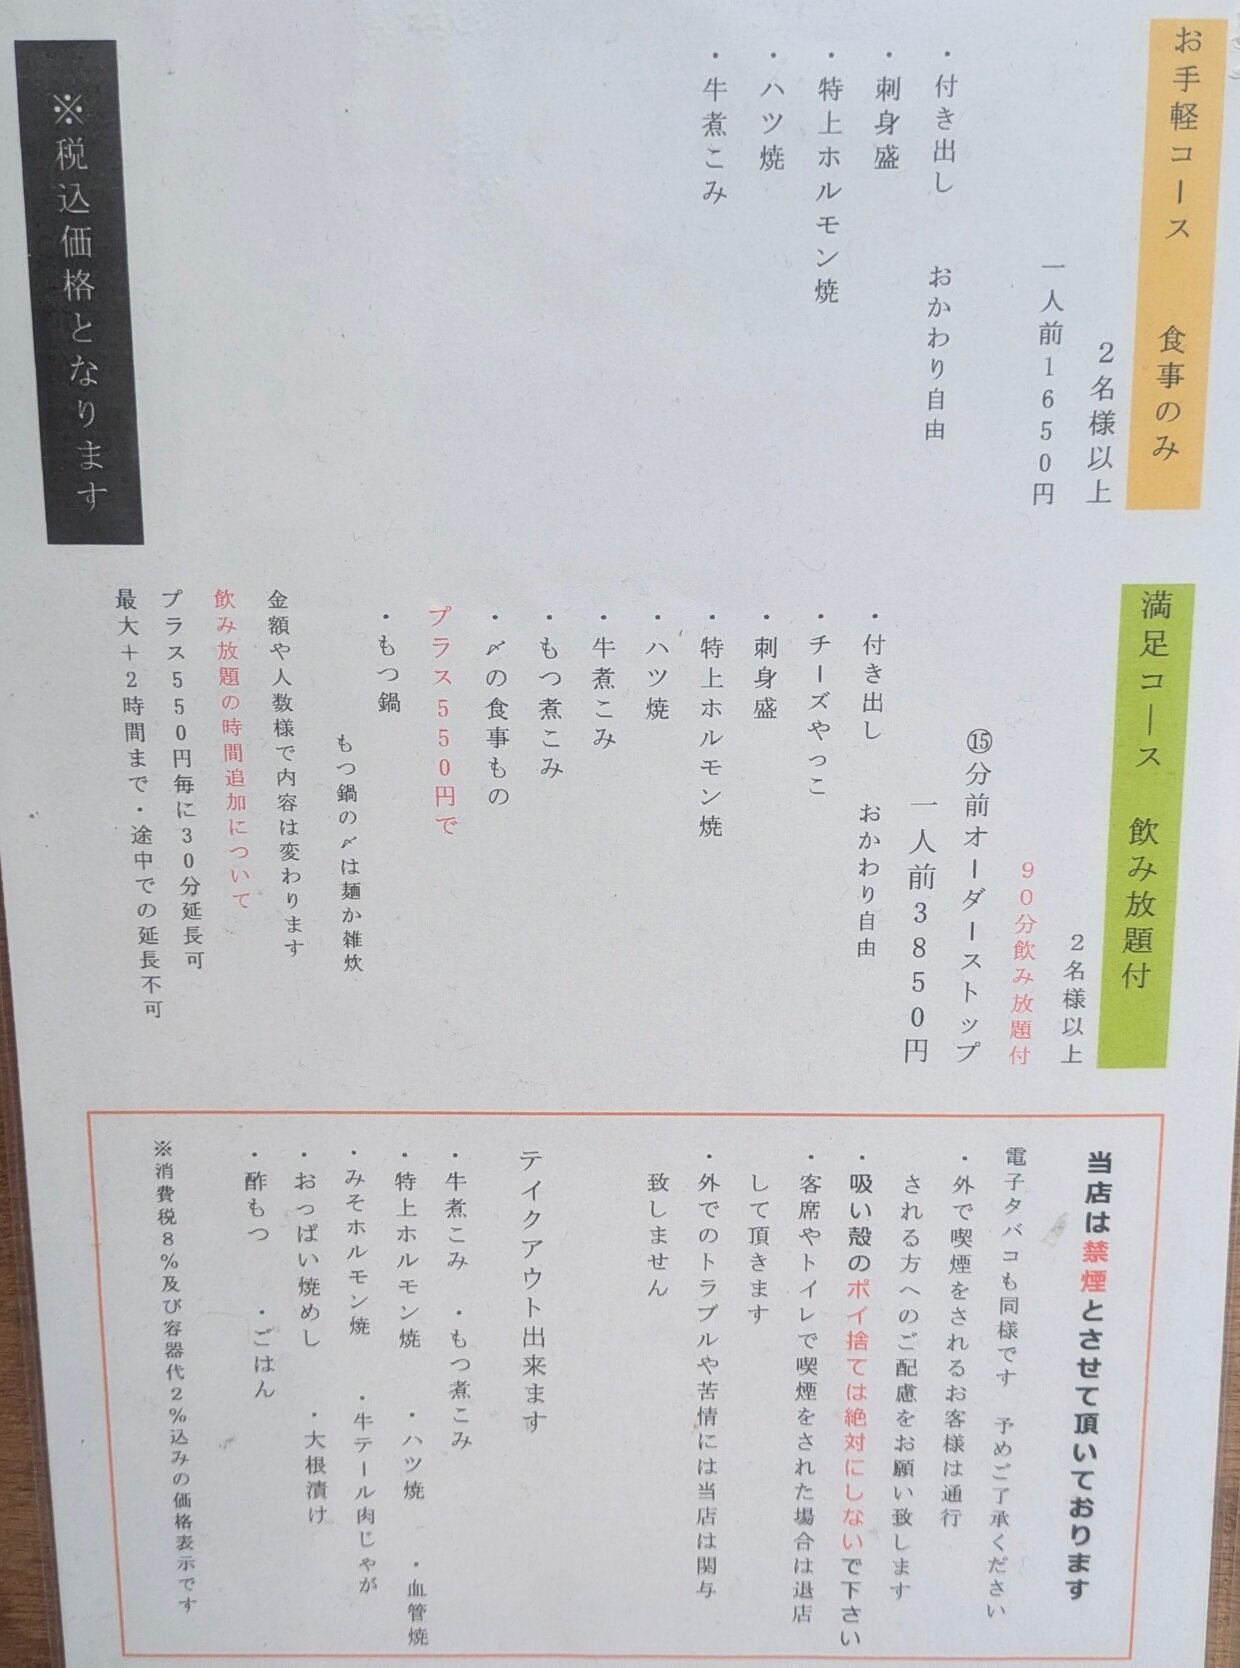 お手軽コース　食事のみ
２名様以上
一人前１６５０円
・付き出し　おかわり自由
・刺身盛
・特上ホルモン焼
・ハツ焼
・牛煮こみ
※税込価格となります
満足コース　飲み放題付
２名様以上
９０分飲み放題付
⑮分前オーダーストップ
一人前３８５０円
・付き出し　おかわり自由
・チーズやっこ
・刺身盛
・特上ホルモン焼
・ハツ焼
・牛煮こみ
・もつ煮こみ
・〆の食事もの
プラス５５０円で
・もつ鍋
もつ鍋の〆は麺か雑炊
金額や人数様で内容は変わります
飲み放題の時間追加について
プラス５５０円毎に３０分延長可
最大＋２時間まで・途中での延長不可
当店は禁煙とさせて頂いております
電子タバコも同様です　予めご了承ください
・外で喫煙をされるお客様は通行
される方へのご配慮をお願い致します
・吸い殻のポイ捨ては絶対にしないで下さい
・客席やトイレで喫煙をされた場合は退店
して頂きます
・外でのトラブルや苦情には当店は関与
致しません
テイクアウト出来ます
・牛煮こみ　・もつ煮こみ
・特上ホルモン焼　・ハツ焼　・血管焼
・みそホルモン焼　・牛テール肉じゃが
・おっぱい焼めし　・大根漬け
・酢もつ　・ごはん
※消費税８％及び容器代２％込みの価格表示です